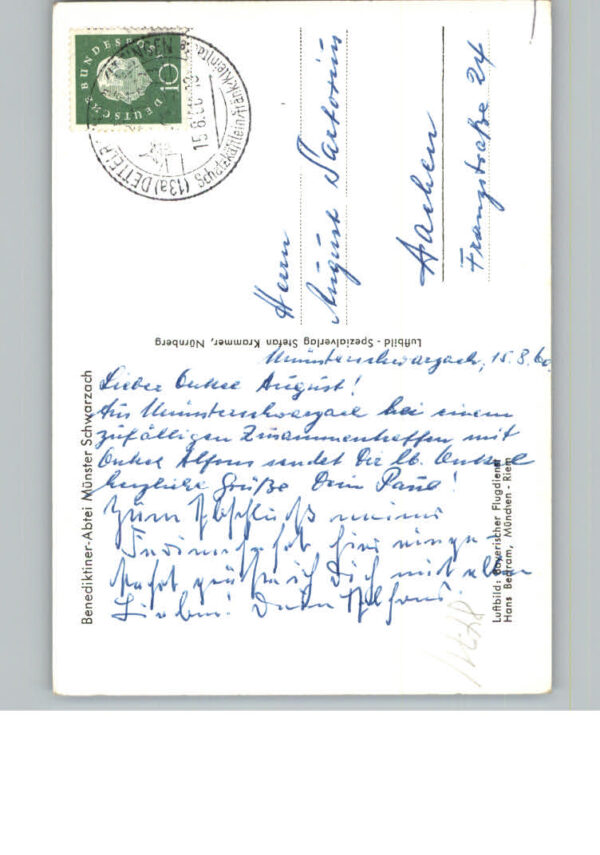 DEUTSCHE BUNDESPOST
10
(13a) DETTELBACH
15.8.60
Schatzkästlein fränk.
Herrn
August Sartorius
Aachen
Franzstraße 24
Luftbild - Spezialverlag Stefan Krammer, Nürnberg
Benediktiner-Abtei Münster Schwarzach
Münsterschwarzach, 15.8.60
Lieber Onkel August!
Aus Münsterschwarzach bei einem
zufälligen Zusammentreffen mit
Onkel Alfons sendet Dir lb. Onkel
herzliche Grüße Dein Paul!
Zum Abschluß meiner
hier
grüße ich Dich mit allen
Lieben! Dein Alfons.
Luftbild: Bayerischer Flugdienst
Hans Bertram, München - Riem